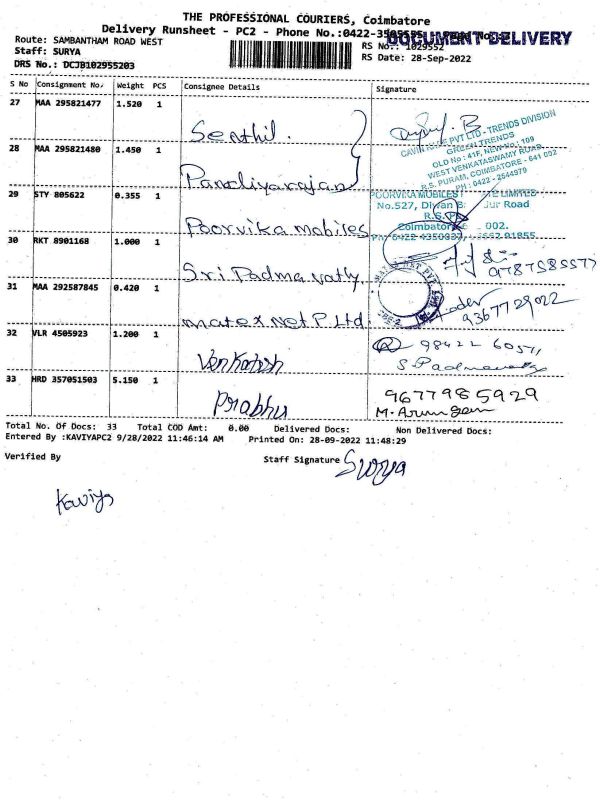 THE PROFESSIONAL COURIERS, Coimbatore
Delivery Runsheet - PC2 - Phone No.:0422-
DOCUMENT DELIVERY
Route: SAMBANTHAM ROAD WEST
RS No.: 1029552
Staff: SURYA
RS Date: 28-Sep-2022
DRS No.: DCJB102955203
S No Consignment No. Weight PCS Consignee Details Signature
27 MAA 295821477 1.520 1 Senthil.
CAVIN PVT LTD - TRENDS DIVISION
GREEN TRENDS
OLD No : 41F, NEW No : 109
WEST VENKATASWAMY ROAD
R.S. PURAM, COIMBATORE - 641 002
PH : 0422 - 2544979
28 MAA 295821480 1.450 1 Pandiyarajan
29 STY 805622 0.355 1 Poorvika mobiles
POORVIKA MOBILES LIMITED
No.527, Diwan Road
R.S.
Coimbatore 002.
30 RKT 8901168 1.000 1 Sri Padmavathy
9787585577
31 MAA 292587845 0.420 1 matex net P Ltd
9367729022
32 VLR 4505923 1.200 1 Venkatesh
98422 60571
S. Padmavathy
33 HRD 357051503 5.150 1 Prabhu
9677985929
Total No. Of Docs: 33 Total COD Amt: 0.00 Delivered Docs: Non Delivered Docs:
Entered By :KAVIYAPC2 9/28/2022 11:46:14 AM Printed On: 28-09-2022 11:48:29
Verified By
Staff Signature Surya
Kaviya